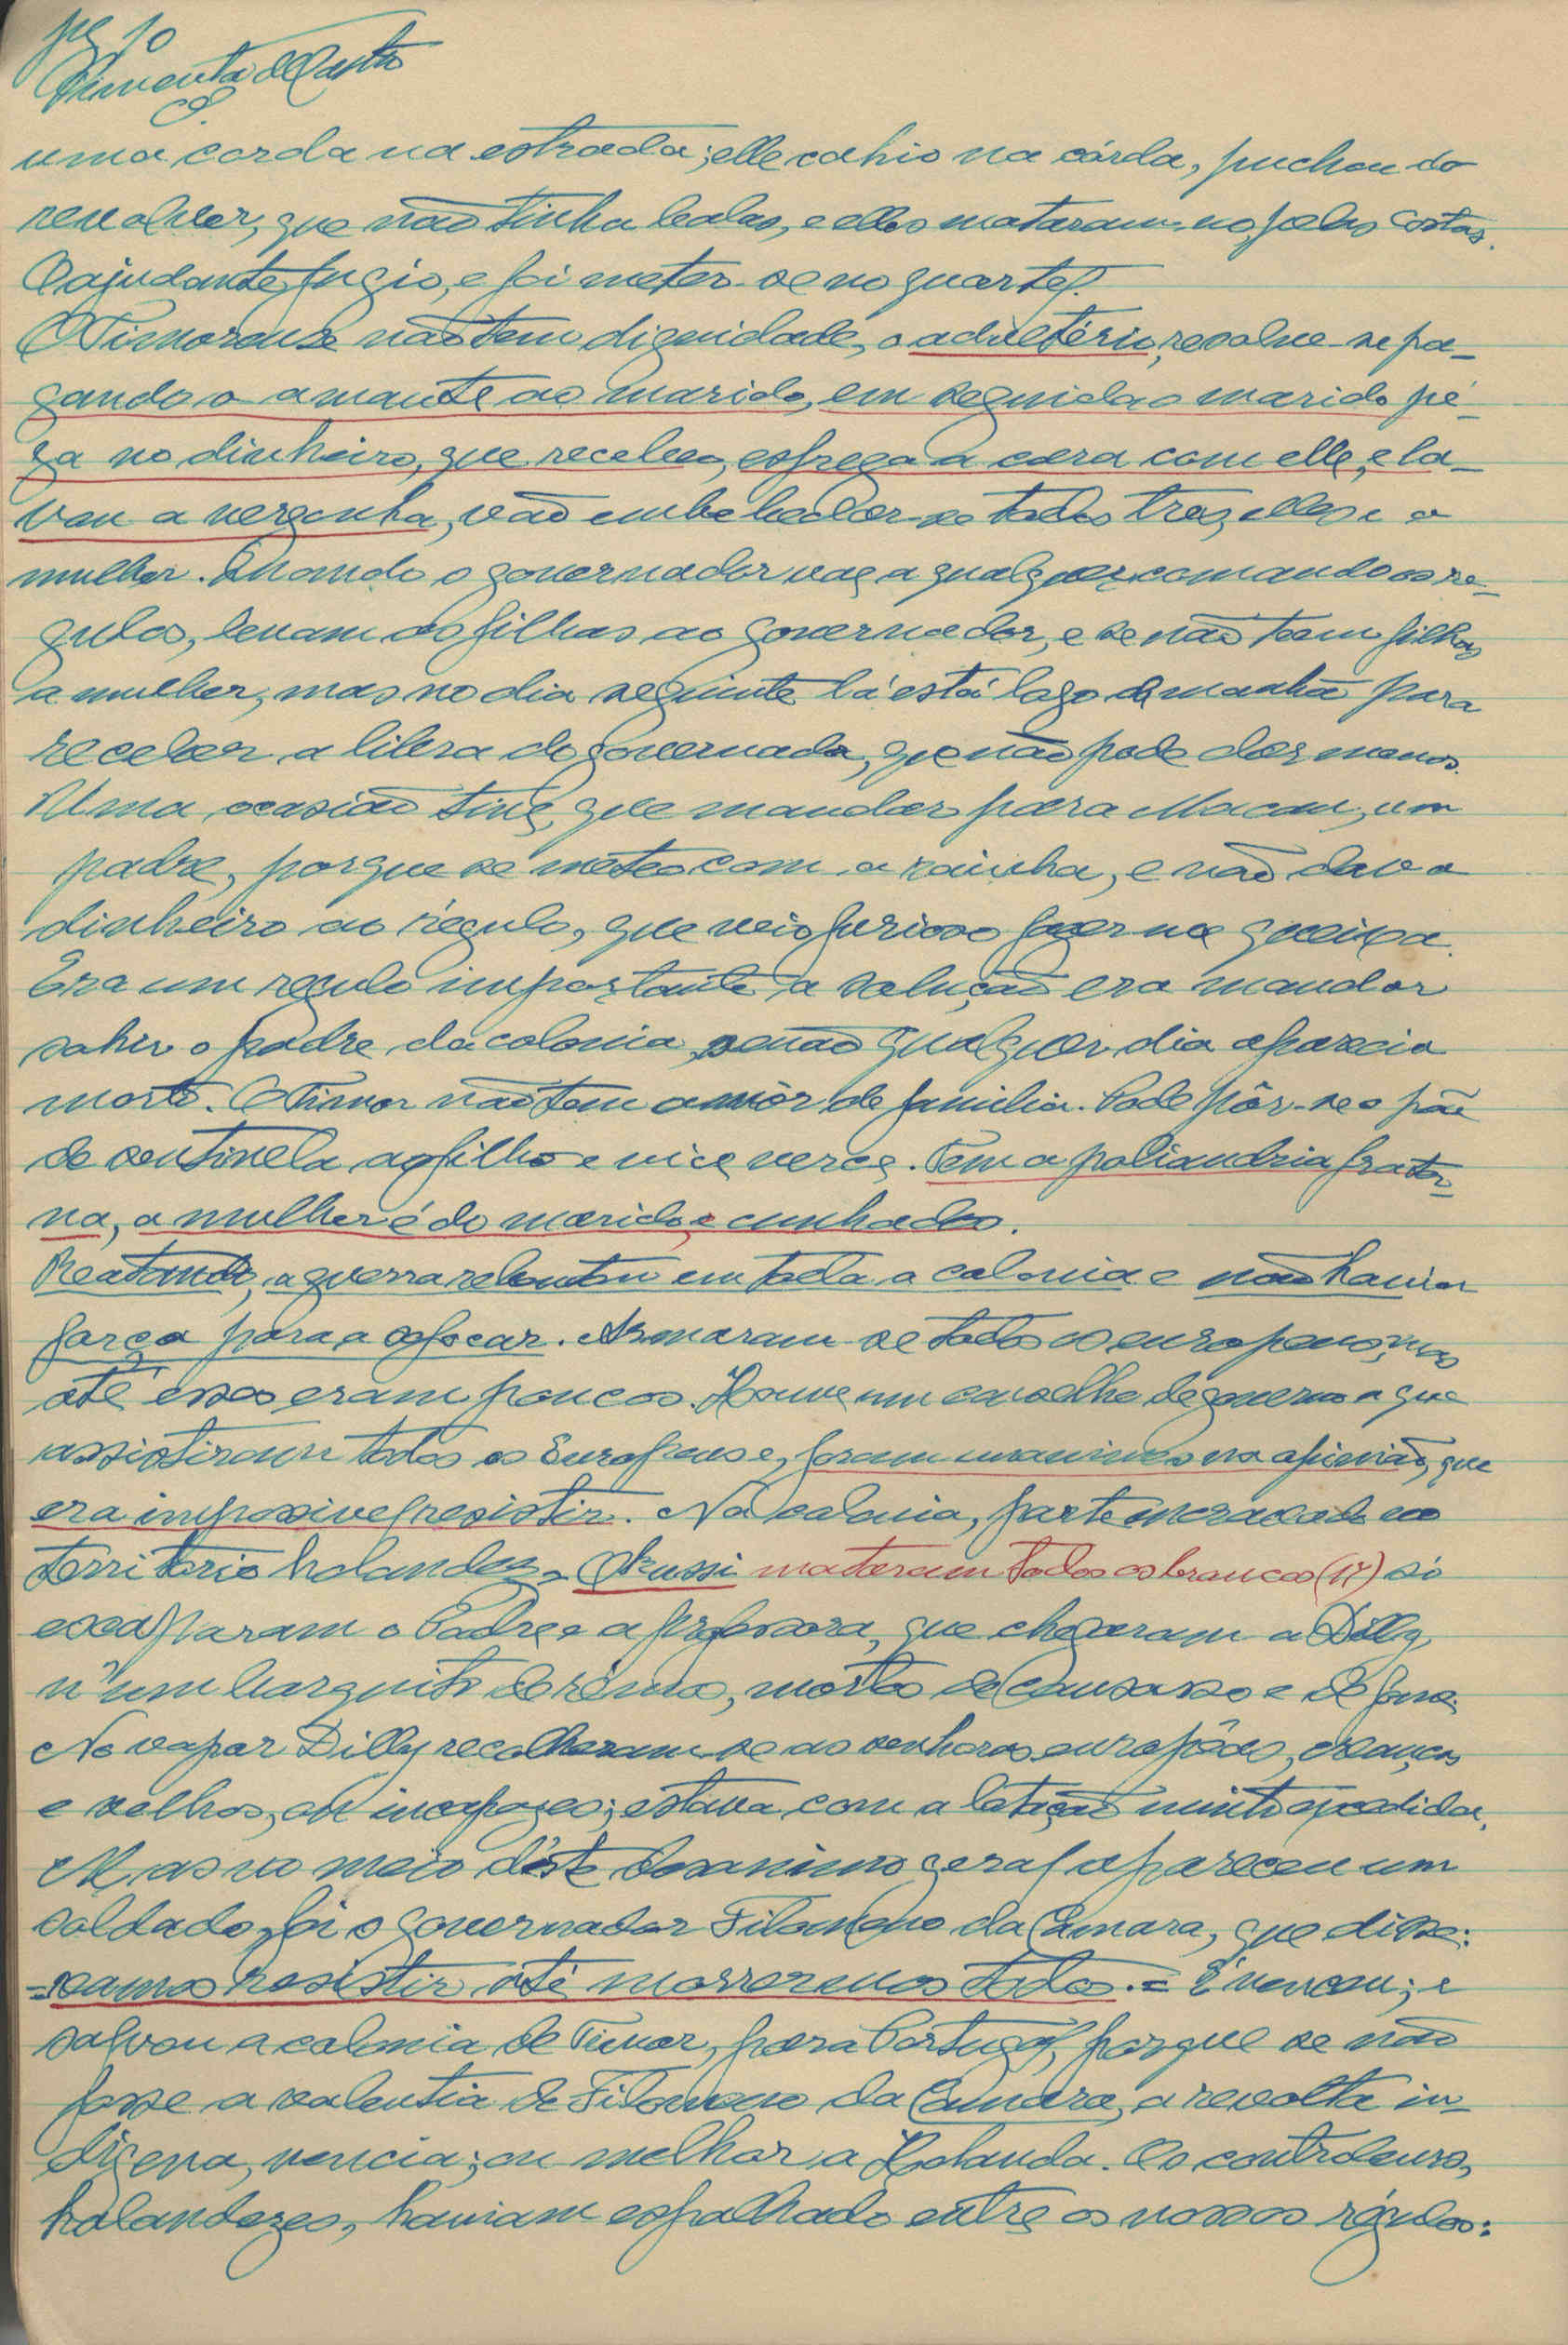 pg 10
Pimenta de Castro
uma corda na estrada; elle cahio na córda, puchou do
revolver, que não tinha balas, e elles mataram-no, pelas costas.
O ajudante fugio, e foi meter-se no quartel.
O Timorense não tem dignidade, o adultério, resolve-se pa-
gando o amante ao marido, em seguida o marido pé-
ga no dinheiro, que recebeu, esfrega a cara com elle, e la-
vou a vergonha, vão embebedar-se todos tres, elles e a
mulher. Quando o governador vae a qualquer comando os re-
gulos, levam as filhas ao governador, e se não teem filhas
a mulher, mas no dia seguinte lá está logo de manhã para
receber a libra do governador, que não pode dar menos.
Uma ocasião tive, que mandar para Macau, um
padre, porque se meteo com a rainha, e não dava
dinheiro ao régulo, que veio furioso fazer-me queixa.
Era um regulo importante a solução era mandar
sahir o padre da colonia, senão qualquer dia aparecia
morto. O Timor não tem amôr de familia. Pode pôr-se o pae
de sentinela ao filho e vice versa. Tem a poliandria frater-
na, a mulher é do marido, e cunhados.
Reatando, a guerra rebentou em toda a colonia e não havia
força para a sofocar. Armaram-se todos os europeus, mas
até esses eram poucos. Houve um conselho de governo a que
assistiram todos os Europeus e, foram unanimes na opinião, que
era impossivel resistir. Na colonia, parte encravada no
território holandez, Okussi mataram todos os brancos (17) só
escaparam o Padre e a professora, que chegaram a Dilly,
n'um barquito de remos, mortos de cansasso e de fome.
No vapor Dilly recolheram-se as senhoras européas, creanças
e velhos, ou incapazes; estava com a lotação muito excedida.
Mas no meio d'este desanimo geral apareceu um
soldado, foi o governador Filomeno da Camara, que disse:
=vamos resistir até morrermos todos.= E venceu; e
salvou a colonia de Timor, para Portugal, porque se não
fosse a valentia de Filomeno da Camara, a revolta in-
digena, vencia; ou melhor a Holanda. Os controleurs,
holandezes, haviam espalhado entre os nossos régulos: